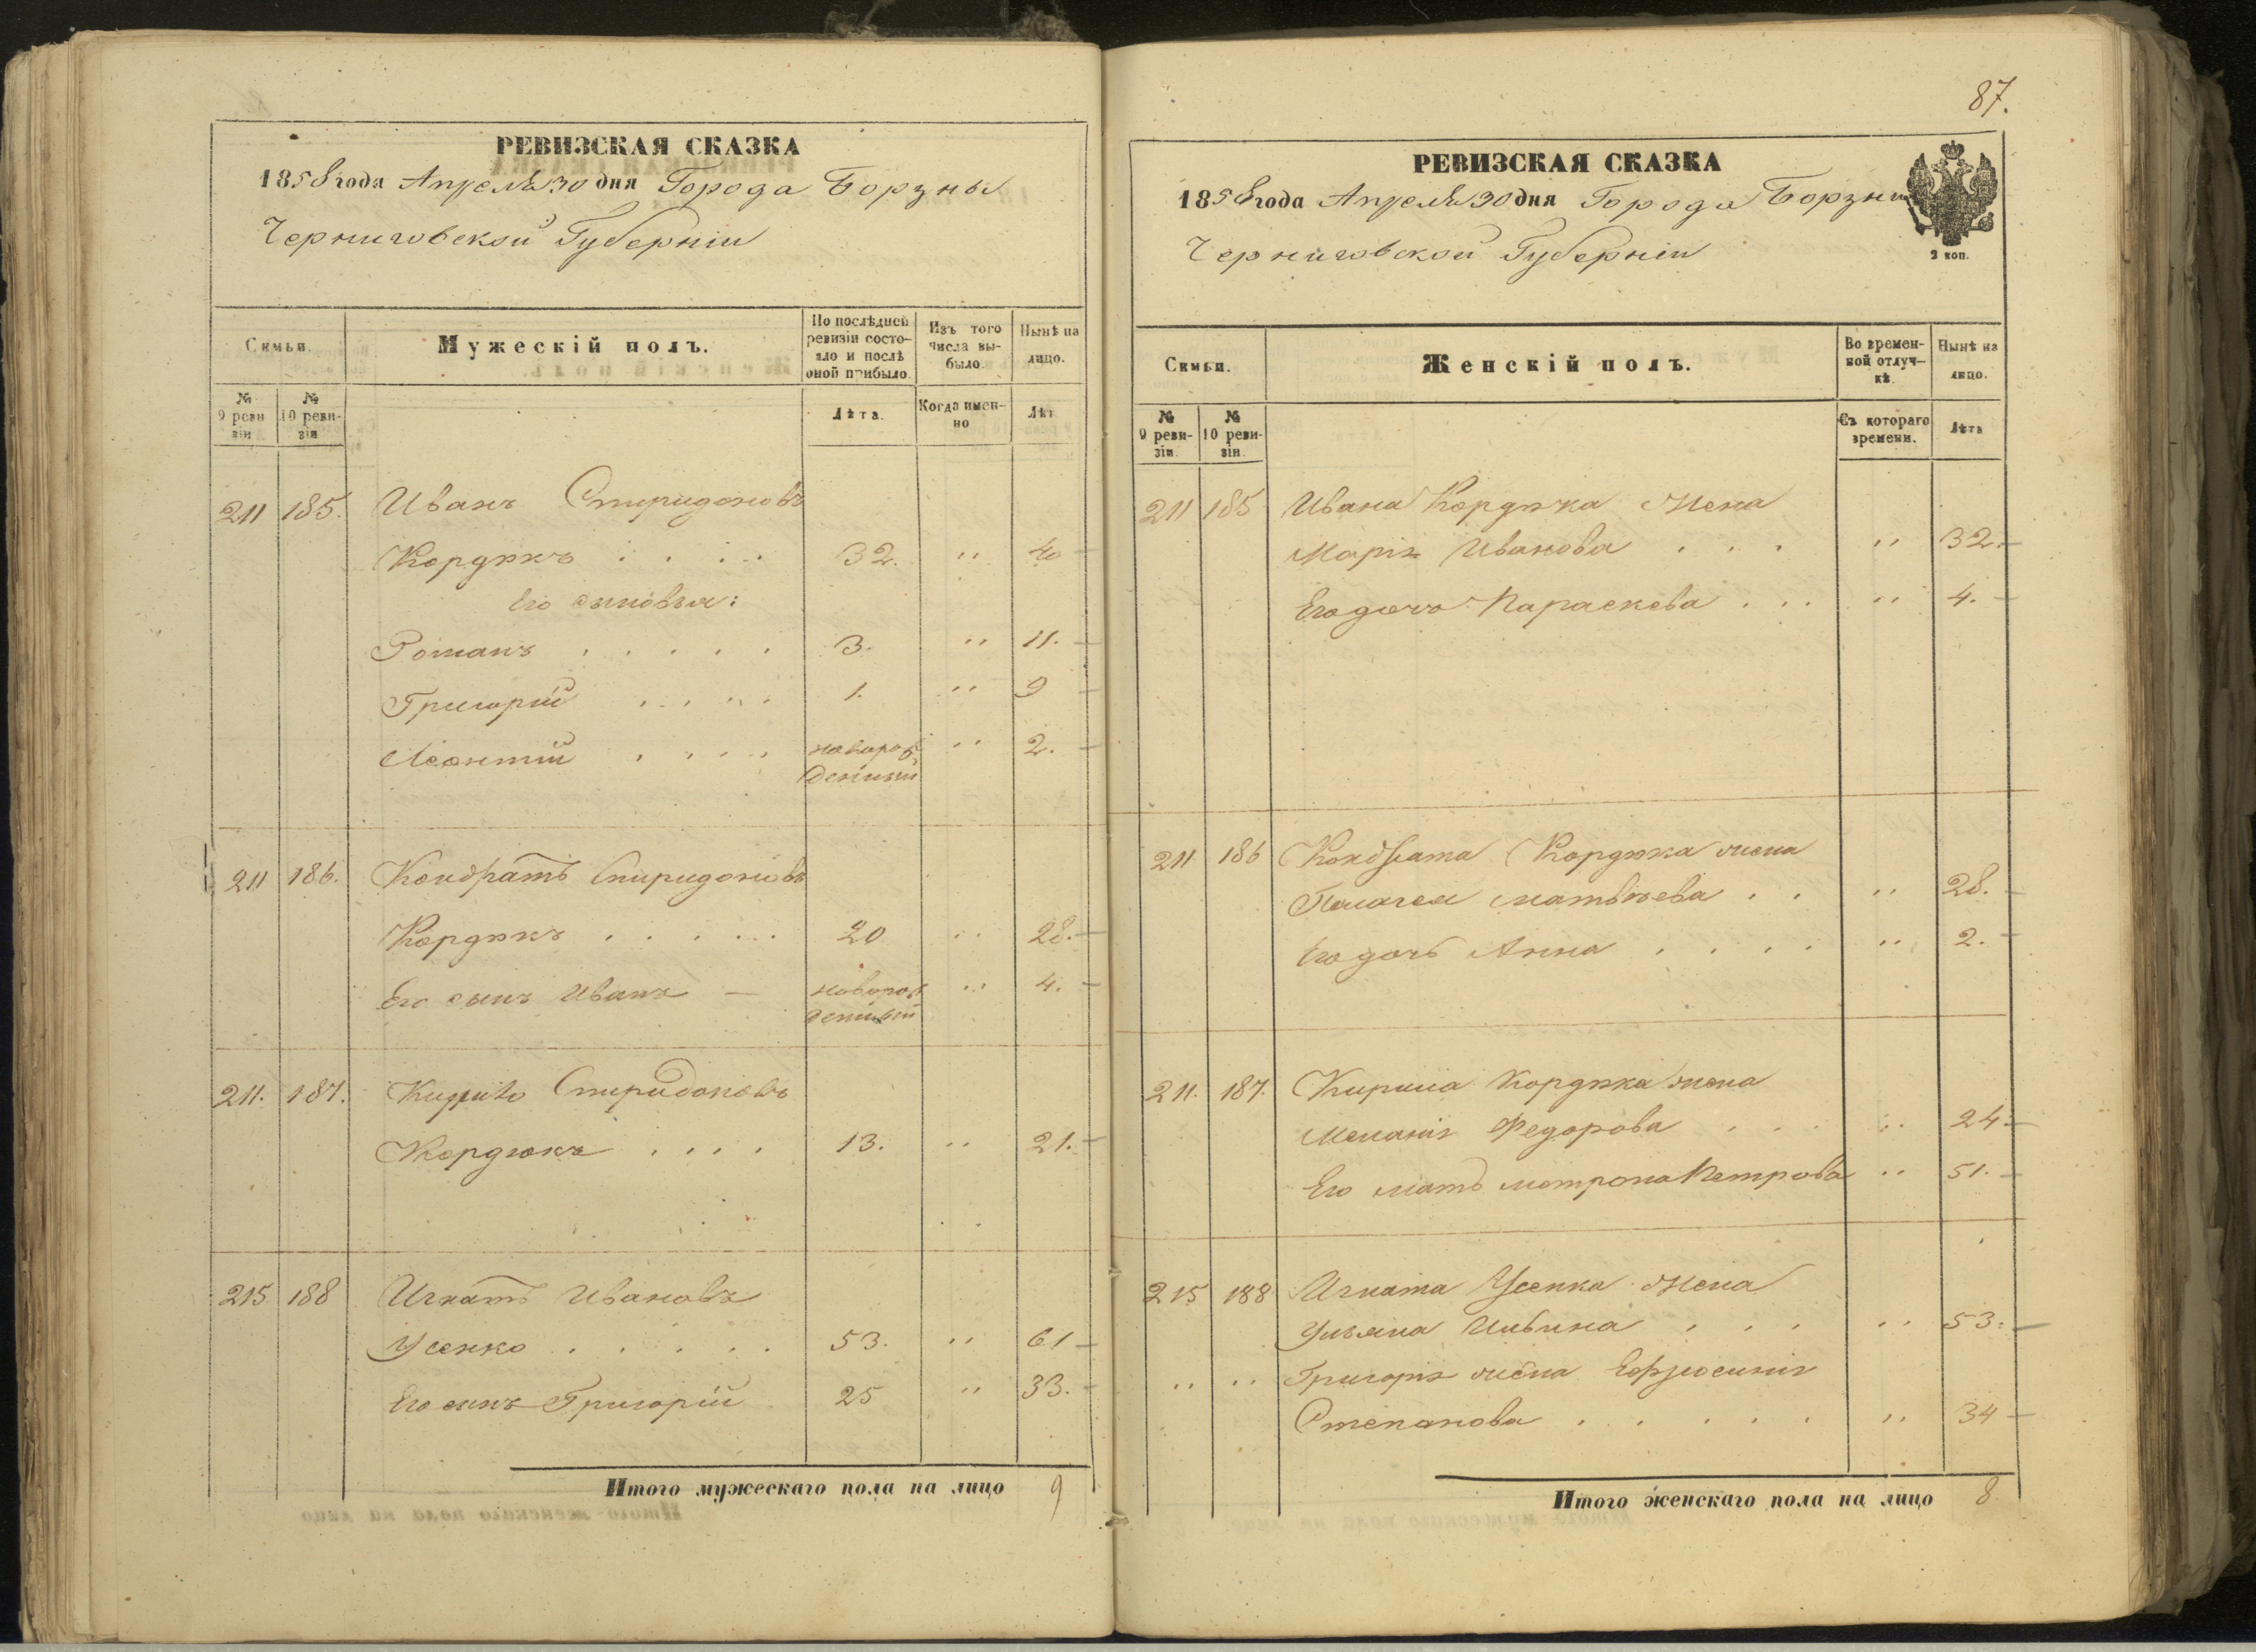 РЕВИЗСКАЯ СКАЗКА
1858 года Апреля 30 дня Города Борзны
Черниговской Губерніи
Симьи.
Мужескій полъ.
По послѣдней ревизіи состо-
яло и послѣ
оной прибыло.
Изъ того
числа вы-
было
Нынѣ на
лицо.
№
9 реви
зіи
№
10 реви-
зія
Лѣта.
Когда имен-
но
Лѣт
211 185. Иванъ Спиридоновъ
Кордюкъ . . . . 32. " 40
Его сыновья:
Романъ . . . . . 3. " 11.
Григорій . . . . 1. " 9
Леонтій . . . . новорож " 2.
денный
211 186. Кондратъ Спиридоновъ
Кордюкъ . . . . . 20 " 28.
Его сынъ Иванъ — новорож " 4.
денный
211. 187. Кирило Спиридоновъ
Кордюкъ . . . . 13. " 21.
215 188 Игнатъ Ивановъ
Усенко . . . . . 53. " 61
Его сынъ Григорій 25 " 33.
Итого мужескаго пола на лицо 9
87.
РЕВИЗСКАЯ СКАЗКА
1858 года Апреля 30 дня Города Борзны
Черниговской Губерніи
2 коп.
Симьи.
Женскій полъ.
Во времен-
ной отлуч-
кѣ.
Нынѣ на
лицо.
№
9 реви-
зіи.
№
10 реви-
зіи.
Съ котораго
времени.
Лѣта
211 185 Ивана Кордюка Жена
Марія Иванова . . . " 32.
Его дочь Параскева . . . " 4.
211 186 Кондрата Кордюка жена
Пелагея Матвѣева . . " 28.
Его дочь Анна . . . . " 2.
211. 187. Кирила Кордюка жена
Меланія Федорова . . . " 24
Его мать Мотрона Петрова " 51.
215 188 Игната Усенка Жена
Ульяна Ильина . . . " 53.
" " Григорія жена Ефросинія
Степанова . . . . . " 34
Итого женскаго пола на лицо 8